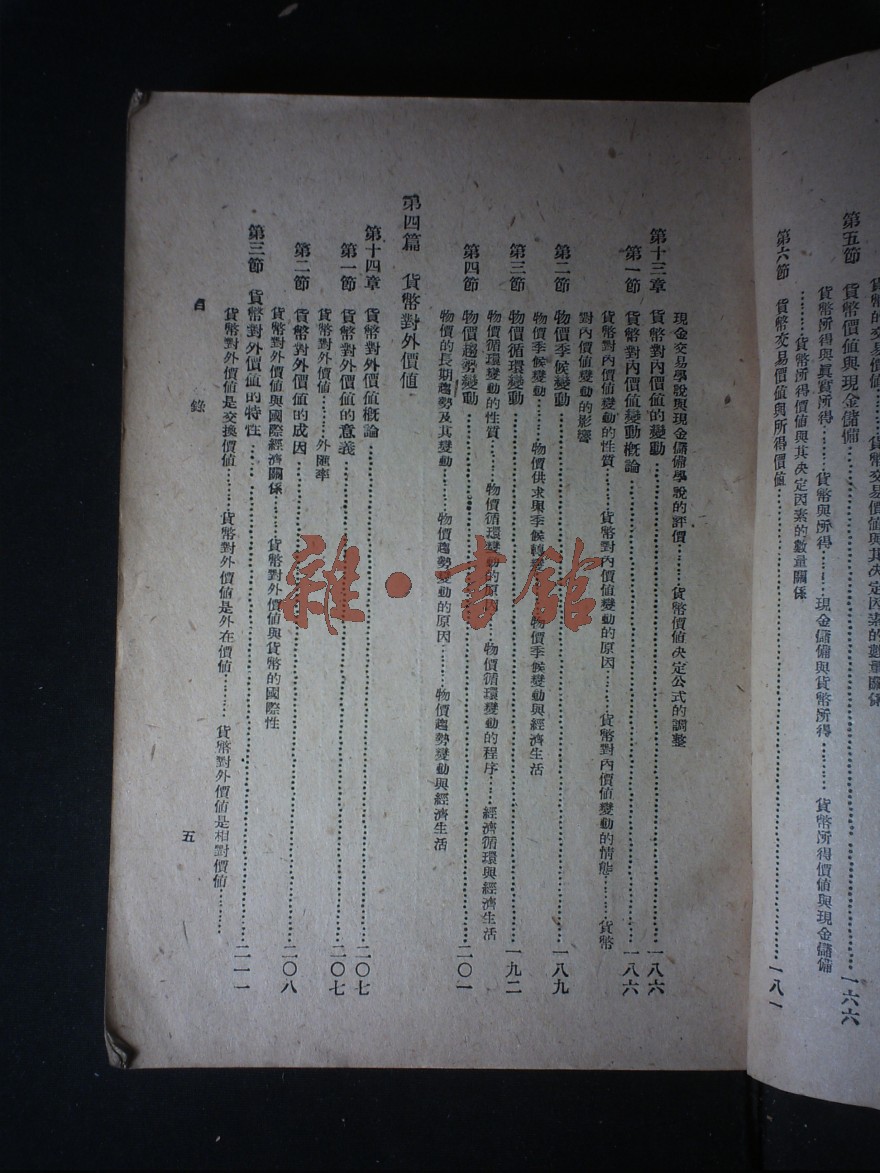 貨幣的交易價值………貨幣交易價值與其決定因素的數量關係
第五節 貨幣價值與現金儲備………一六六
貨幣所得與眞實所得………貨幣與所得………現金儲備與貨幣所得………貨幣所得價值與現金儲備
………貨幣所得價值與其決定因素的數量關係
第六節 貨幣交易價值與所得價值………一八一
現金交易學說與現金儲備學說的評價………貨幣價值決定公式的調整
第十三章 貨幣對內價值的變動………一八六
第一節 貨幣對內價值變動概論………一八六
貨幣對內價值變動的性質………貨幣對內價值變動的原因………貨幣對內價值變動的情態………貨幣
對內價值變動的影響
第二節 物價季候變動………一八九
物價季候變動………物價供求與季候轉變………物價季候變動與經濟生活
第三節 物價循環變動………一九二
物價循環變動的性質………物價循環變動的原因………物價循環變動的程序………經濟循環與經濟生活
第四節 物價趨勢變動………二〇一
物價的長期趨勢及其變動………物價趨勢變動的原因………物價趨勢變動與經濟生活
第四篇 貨幣對外價值
第十四章 貨幣對外價值概論………二〇七
第一節 貨幣對外價值的意義………二〇七
貨幣對外價值………外匯率
第二節 貨幣對外價值的成因………二〇八
貨幣對外價值與國際經濟關係………貨幣對外價值與貨幣的國際性
第三節 貨幣對外價值的特性………二一一
貨幣對外價值是交換價值………貨幣對外價值是外在價值………貨幣對外價值是相對價值………
目錄
五
雜·書館